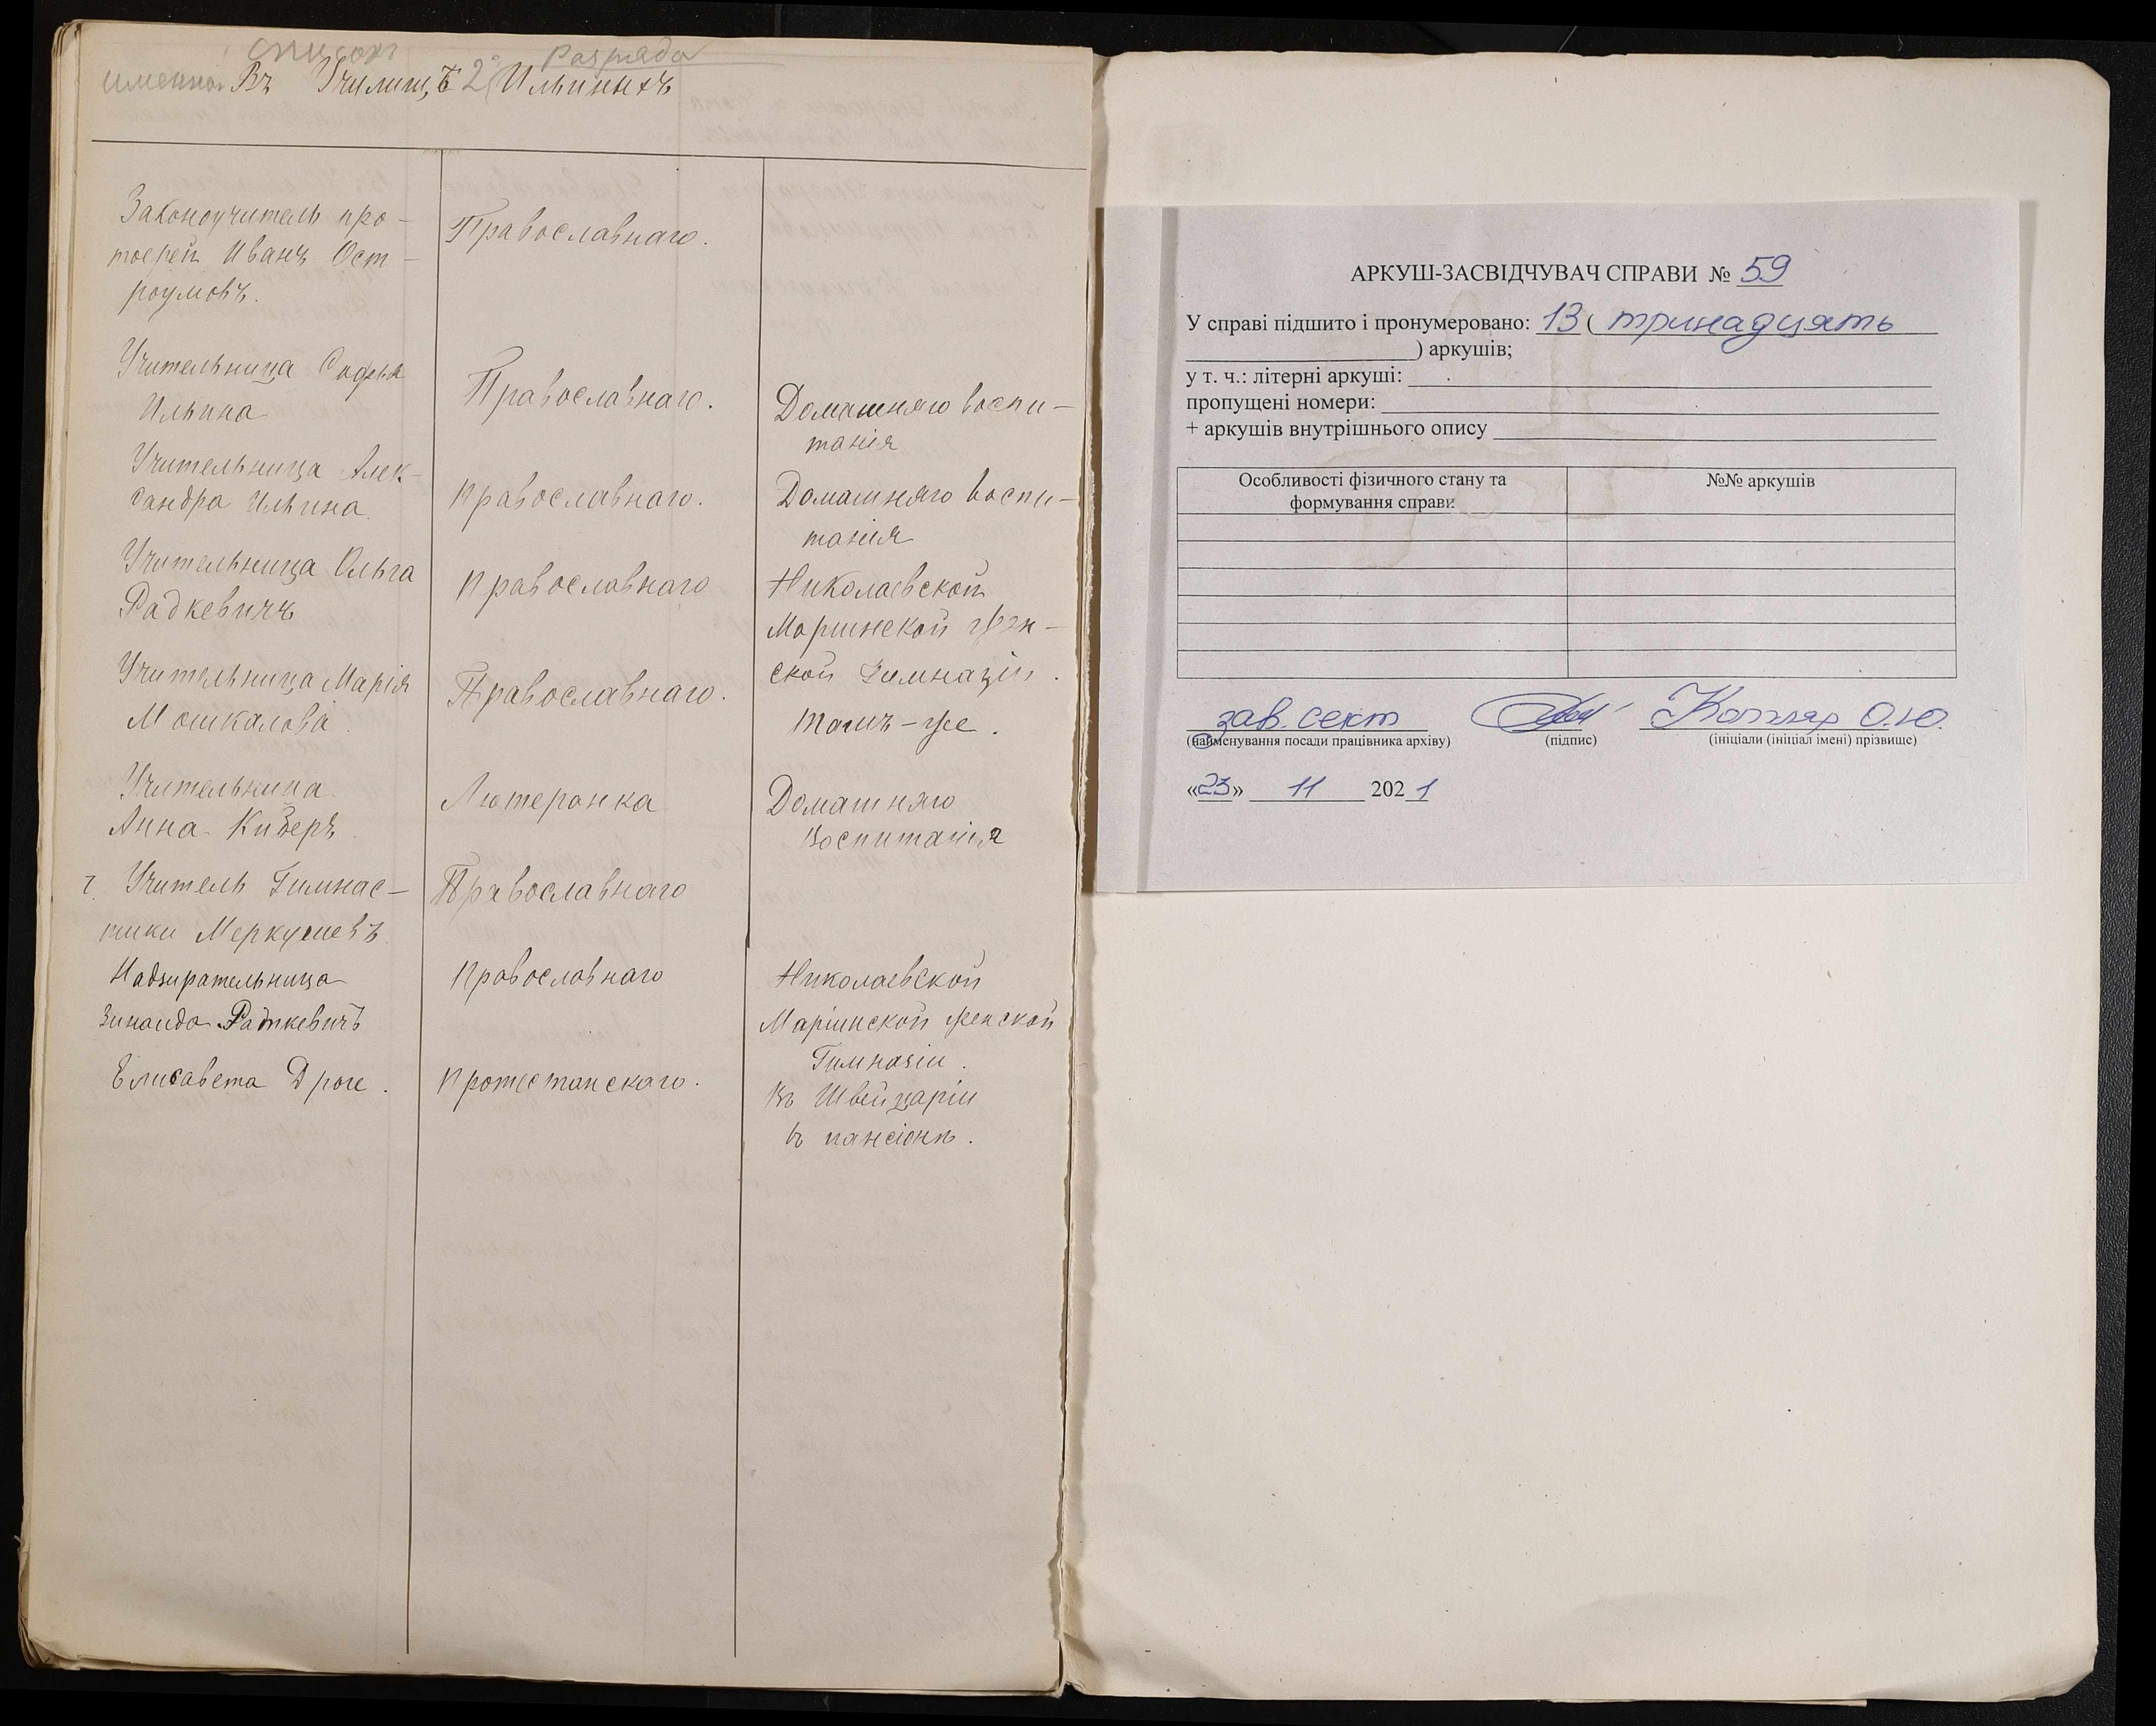 списокъ разряда
именной Въ Училищѣ 2 Ильиныхъ
Законоучитель про-
тоерей Иванъ Ост-
роумовъ.
Православнаго.
Учительница Софья
Ильина
Православнаго.
Домашняго воспи-
танія
Учительница Алек-
сандра Ильина.
Православнаго.
Домашняго воспи-
танія
Учительница Ольга
Радкевичъ
Православнаго
Николаевской
Маріинской жен-
ской Гимназіи.
Учительница Марія
Мошкалова.
Православнаго.
тамъ-же.
Учительница
Анна Киберъ.
Лютеранка
Домашняго
Воспитанія
Учитель Гимнас-
тики Меркушевъ
Православнаго
Надзирательница
Зинаида Раткевичъ
Православнаго
Николаевской
Маріинской женской
Гимназіи.
Елисавета Дроге.
Протестанскаго.
Въ Швейцаріи
въ пансіонѣ.
АРКУШ-ЗАСВІДЧУВАЧ СПРАВИ № 59
У справі підшито і пронумеровано: 13 ( тринадцять
) аркушів;
у т. ч.: літерні аркуші:
пропущені номери:
+ аркушів внутрішнього опису
Особливості фізичного стану та
формування справи
№№ аркушів
зав. сект Котляр О.Ю.
(найменування посади працівника архіву) (підпис) (ініціали (ініціал імені) прізвище)
«23» 11 2021